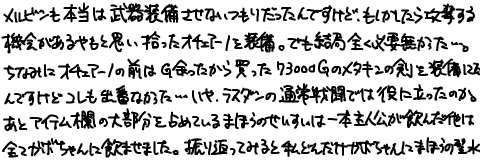 メルビンも本当は武器装備させないつもりだったんですけど、もしかしたら攻撃する
機会があるやもと思い拾ったオチェアーノを装備。でも結局全く必要無かった…。
ちなみにオチェアーノの前はG余ったから買った73000Gのメタキンの剣を装備に
んですけどコレも出番なかた…いや、ラスダンの通常戦闘では役に立ったのか。
あとアイテム欄の大部分を占めているまほうのせいすいは一本主人公が飲んだ他は
全てガボちゃんに飲ませました。振り返ってみると私どんだけガボちゃんにまほうの聖水